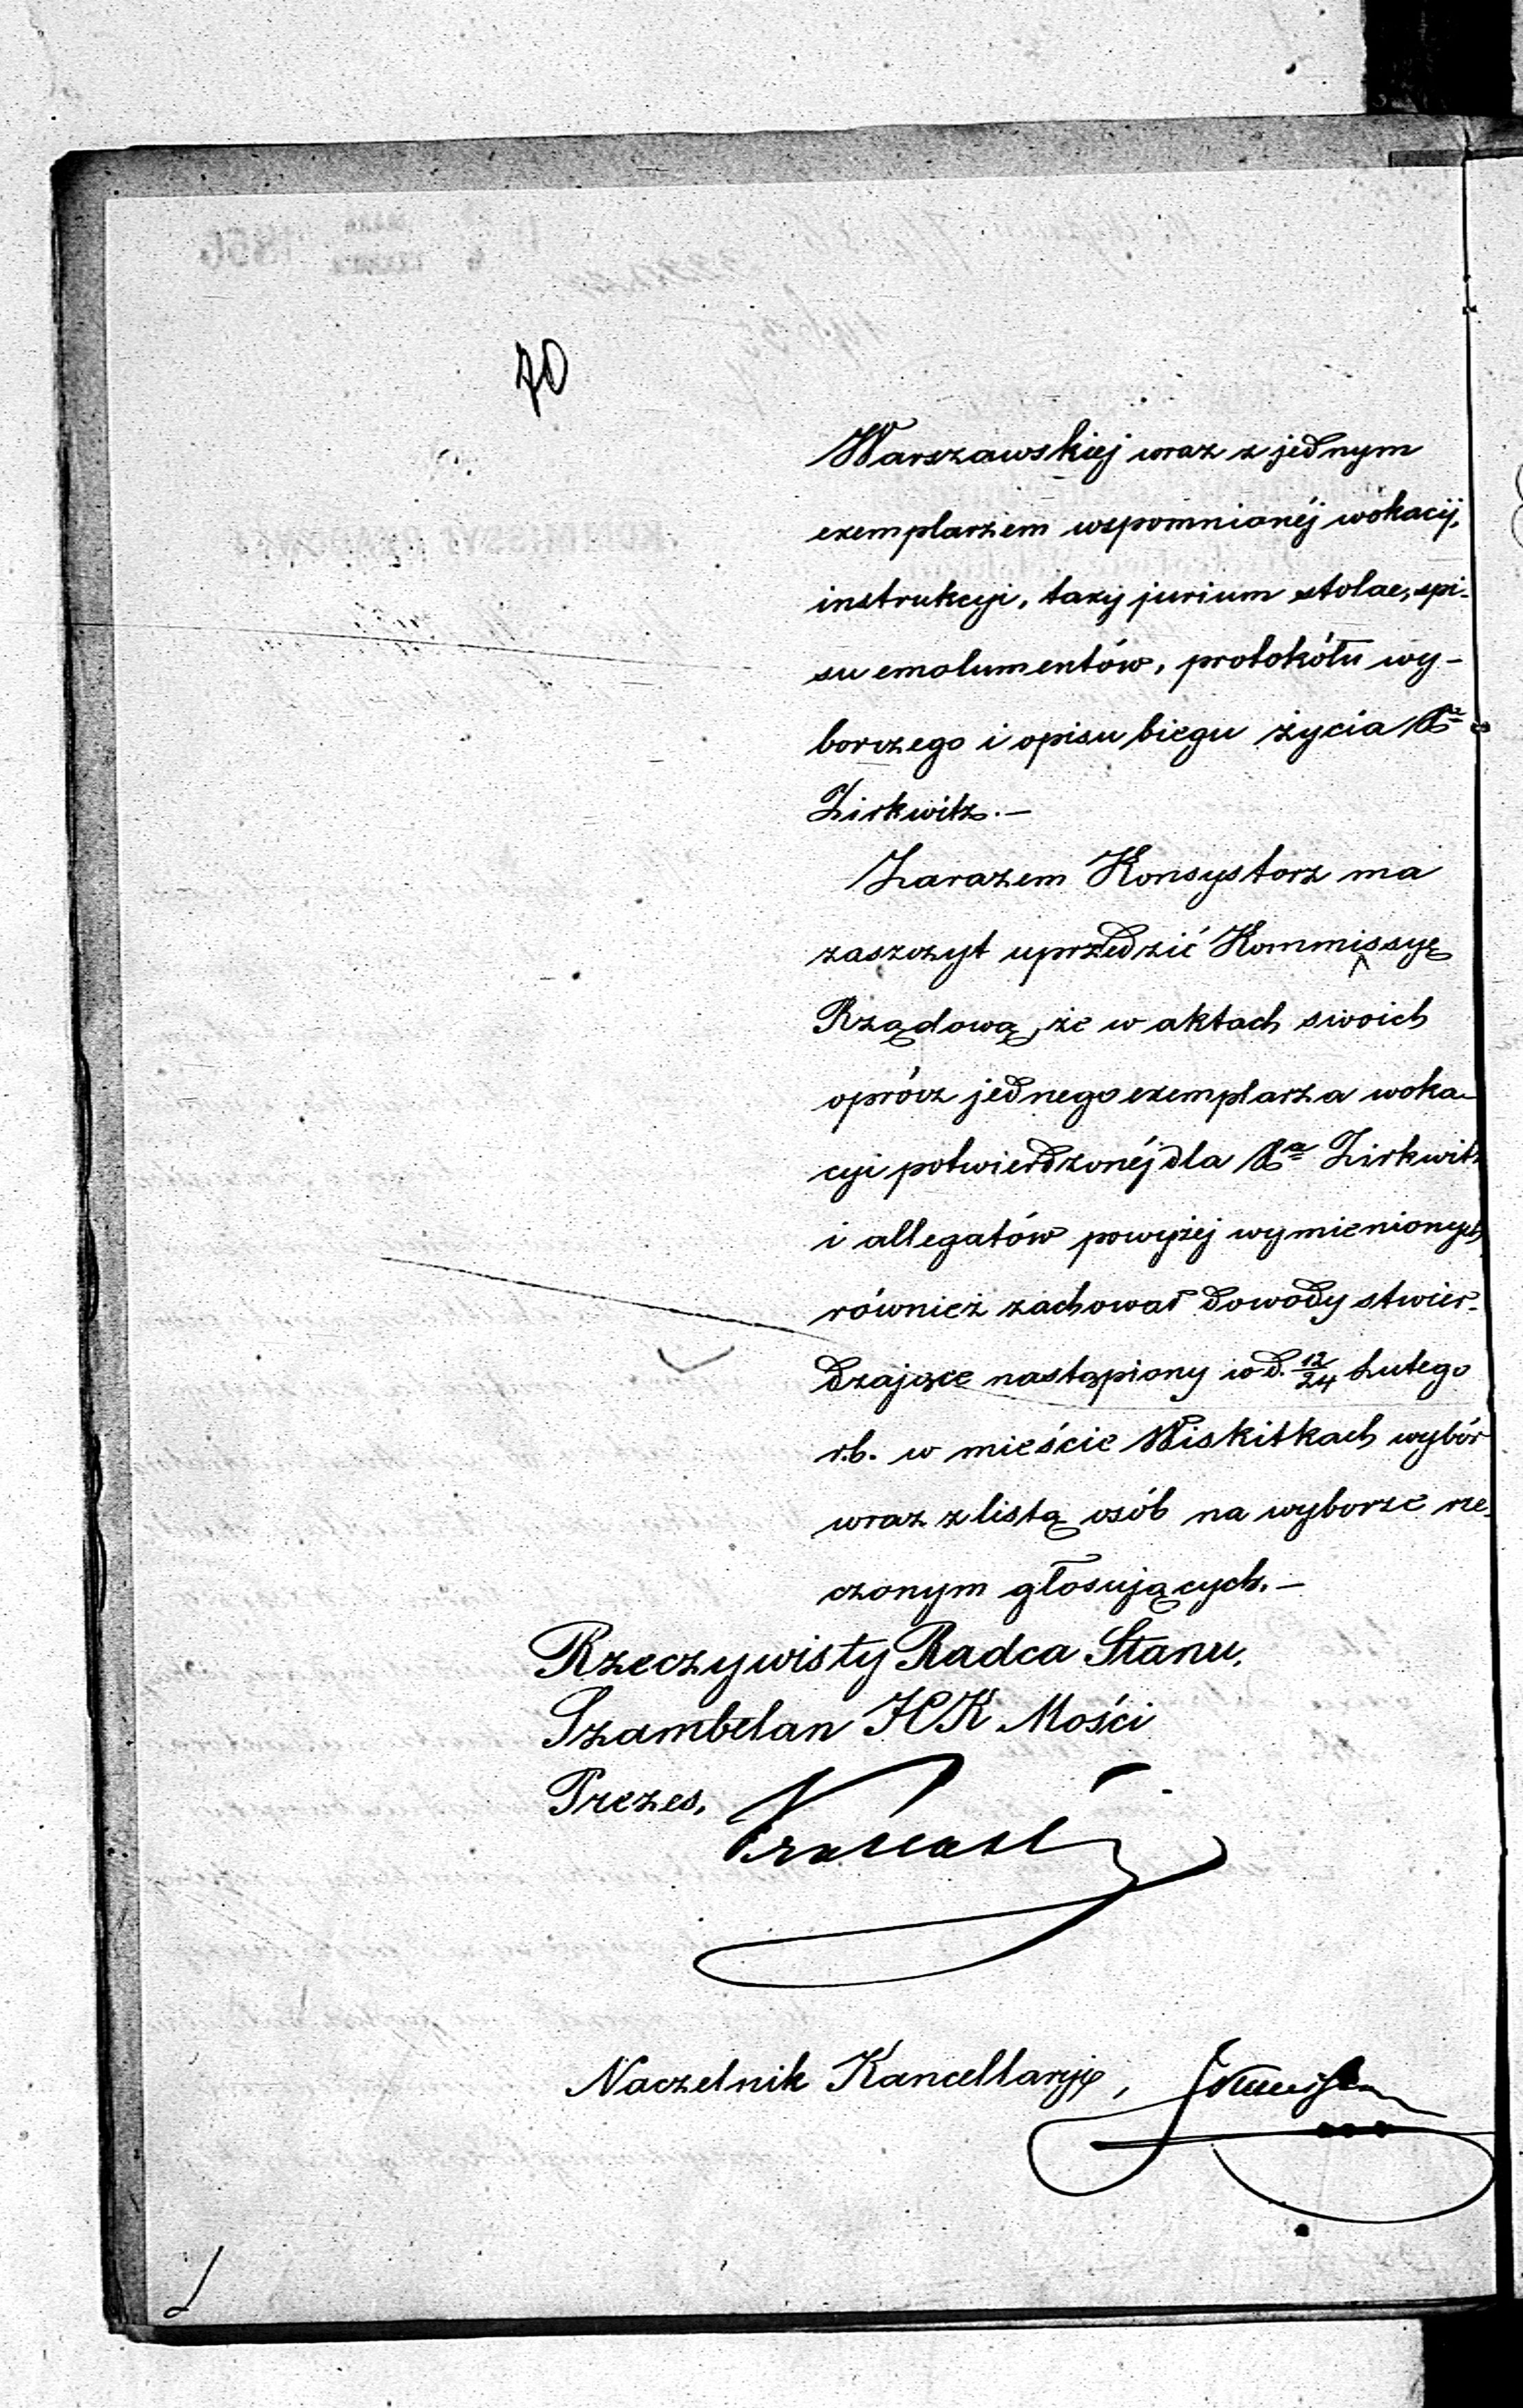 70
Warszawskiej wraz z jednym
exemplarzem wspomnionéj wokacyi,
instrukcyi, taxy jurium stolae, spi-
su emolumentów, protokółu wy-
borczego i opisu biegu życia
Zirkwitz.—
Zarazem Konsystorz ma
zaszczyt uprzedzić Kommissyę
Rządową, że w aktach swoich
oprócz jednego exemplarza woka-
cyi potwierdzonéj dla Zirkwitz
i allegatów powyżej wymienionych
również zachował dowody stwier-
dzające nastąpiony w d. 12/24 Lutego
r.b. w mieście Wiskitkach wybór
wraz z listą osób na wyborze rze-
czonym głosujących.—
Rzeczywisty Radca Stanu,
Szambelan JCK Mości
Prezes,
Naczelnik Kancellaryi,